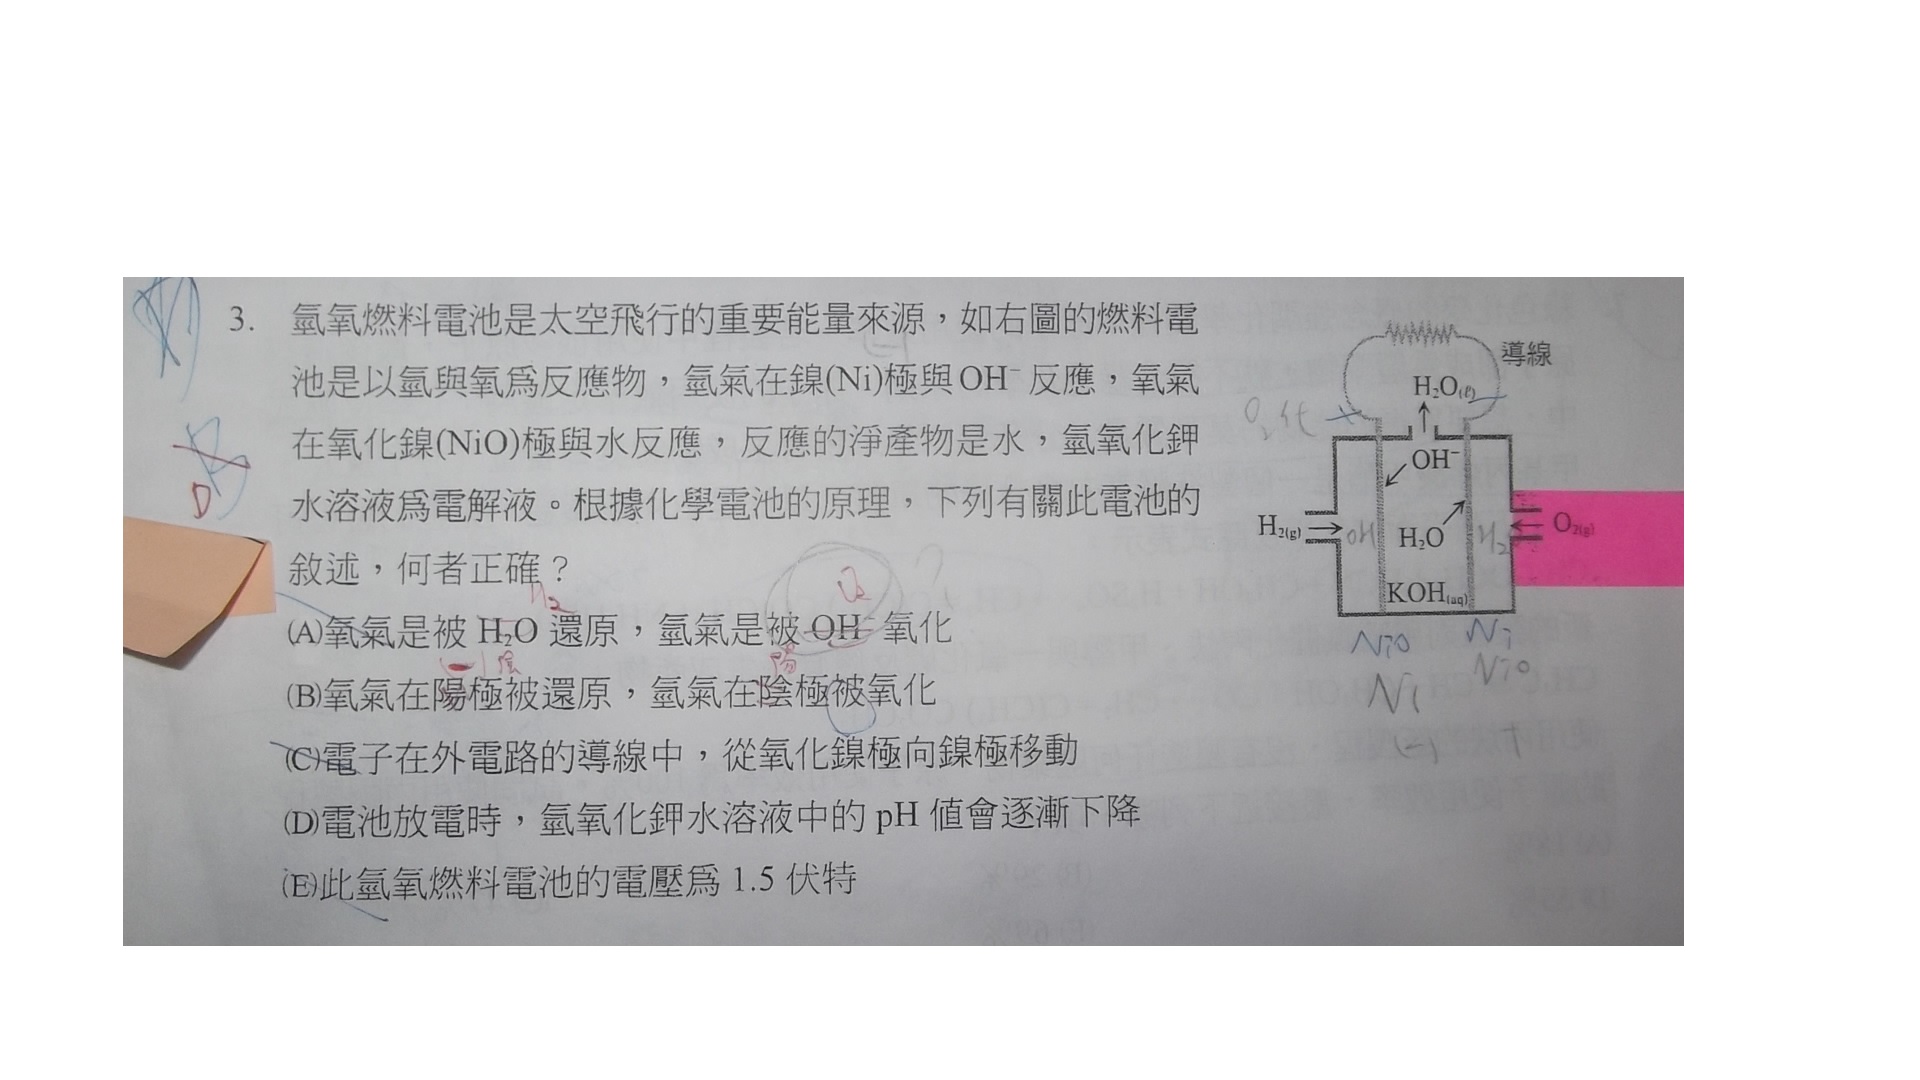 3. 氫氧燃料電池是太空飛行的重要能量來源，如右圖的燃料電
池是以氫與氧爲反應物，氫氣在鎳(Ni)極與OH⁻反應，氧氣
在氧化鎳(NiO)極與水反應，反應的淨產物是水，氫氧化鉀
水溶液爲電解液。根據化學電池的原理，下列有關此電池的
敘述，何者正確？
H₂
O₂
(A)氧氣是被 H₂O 還原，氫氣是被 OH⁻ 氧化
(-) 陰
陽
(B)氧氣在陽極被還原，氫氣在陰極被氧化
(C)電子在外電路的導線中，從氧化鎳極向鎳極移動
(D)電池放電時，氫氧化鉀水溶液中的 pH 值會逐漸下降
(E)此氫氧燃料電池的電壓爲 1.5 伏特
D
導線
H₂O(ℓ)
OH⁻
H₂(g)
OH
H₂O
H₂
O₂(g)
KOH(aq)
NiO
Ni
Ni
NiO
(-) +